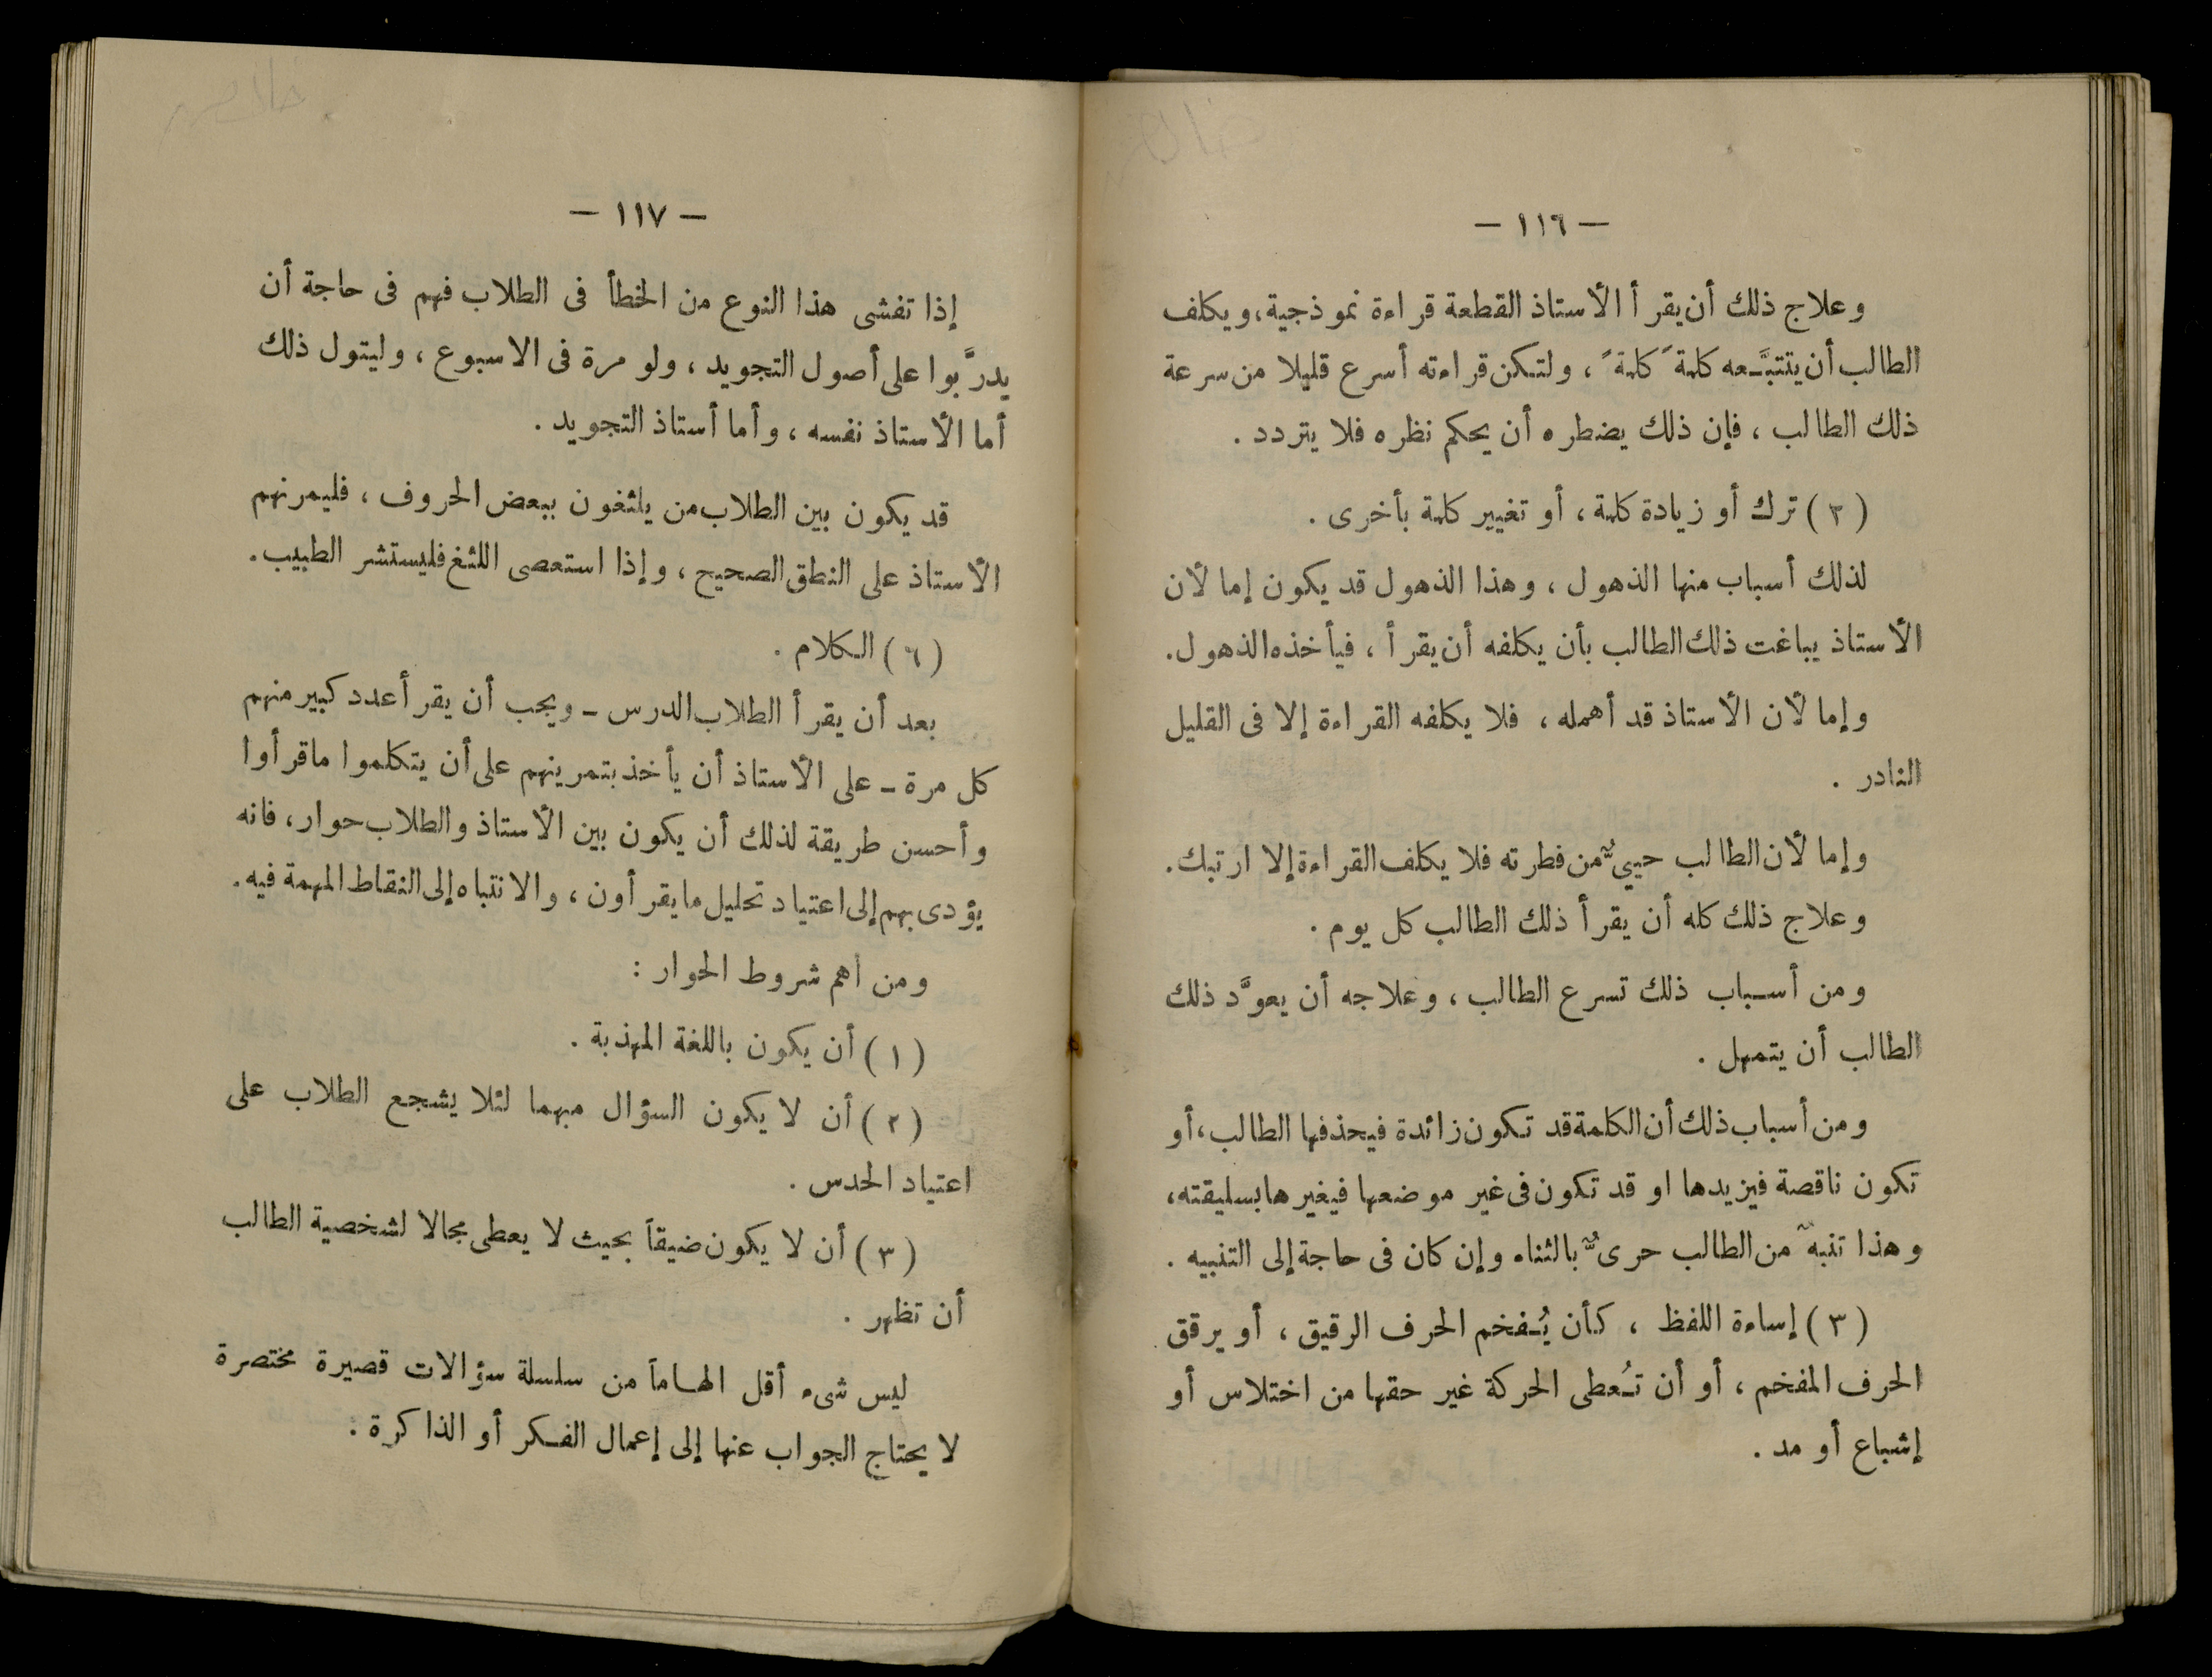 — ١١٦ —
وعلاج ذلك أن يقرأ الأستاذ القطعة قراءة نموذجية، ويكلف
الطالب أن يتتبَّعه كلمةً كلمةً ، ولتكن قراءته أسرع قليلا من سرعة
ذلك الطالب ، فإن ذلك يضطره أن يحكم نظره فلا يتردد .
( ٢ ) ترك أو زيادة كلمة ، أو تغيير كلمة بأخرى .
لذلك أسباب منها الذهول ، وهذا الذهول قد يكون إما لأن
الأستاذ يباغت ذلك الطالب بأن يكلفه أن يقرأ ، فيأخذه الذهول.
وإما لأن الأستاذ قد أهمله ، فلا يكلفه القراءة إلا فى القليل
النادر .
وإما لأن الطالب حييٌّ من فطرته فلا يكلف القراءة إلا ارتبك.
وعلاج ذلك كله أن يقرأ ذلك الطالب كل يوم .
ومن أسباب ذلك تسرع الطالب ، وعلاجه أن يعوَّد ذلك
الطالب أن يتمهل .
ومن أسباب ذلك أن الكلمة قد تكون زائدة فيحذفها الطالب ، أو
تكون ناقصة فيزيدها او قد تكون فى غير موضعها فيغيرها بسليقته ،
وهذا تنبهٌ من الطالب حرىٌّ بالثناء وإن كان فى حاجة إلى التنبيه .
( ٣ ) إساءة اللفظ ، كأن يُفخم الحرف الرقيق ، أو يرقق
الحرف المفخم ، أو أن تُعطى الحركة غير حقها من اختلاس أو
إشباع أو مد .
— ١١٧ —
إذا تفشى هذا النوع من الخطأ فى الطلاب فهم فى حاجة أن
يدرَّبوا على أصول التجويد ، ولو مرة فى الاسبوع ، وليتول ذلك
أما الأستاذ نفسه ، وأما أستاذ التجويد .
قد يكون بين الطلاب من يلثغون ببعض الحروف ، فليمرنهم
الأستاذ على النطق الصحيح ، وإذا استعصى اللثغ فليستشر الطبيب.
( ٦ ) الكلام .
بعد أن يقرأ الطلاب الدرس ــ ويجب أن يقرأ عدد كبير منهم
كل مرة ــ على الأستاذ أن يأخذ بتمرينهم على أن يتكلموا ما قرأوا
وأحسن طريقة لذلك أن يكون بين الأستاذ والطلاب حوار ، فانه
يؤدى بهم إلى اعتياد تحليل ما يقرأون ، والانتباه إلى النقاط المهمة فيه.
ومن أهم شروط الحوار :
( ١ ) أن يكون باللغة المهذبة .
( ٢ ) أن لا يكون السؤال مبهما لئلا يشجع الطلاب على
اعتياد الحدس .
( ٣ ) أن لا يكون ضيقاً بحيث لا يعطى مجالا لشخصية الطالب
أن تظهر .
ليس شىء أقل الهاماً من سلسلة سؤالات قصيرة مختصرة
لا يحتاج الجواب عنها إلى إعمال الفكر أو الذاكرة :